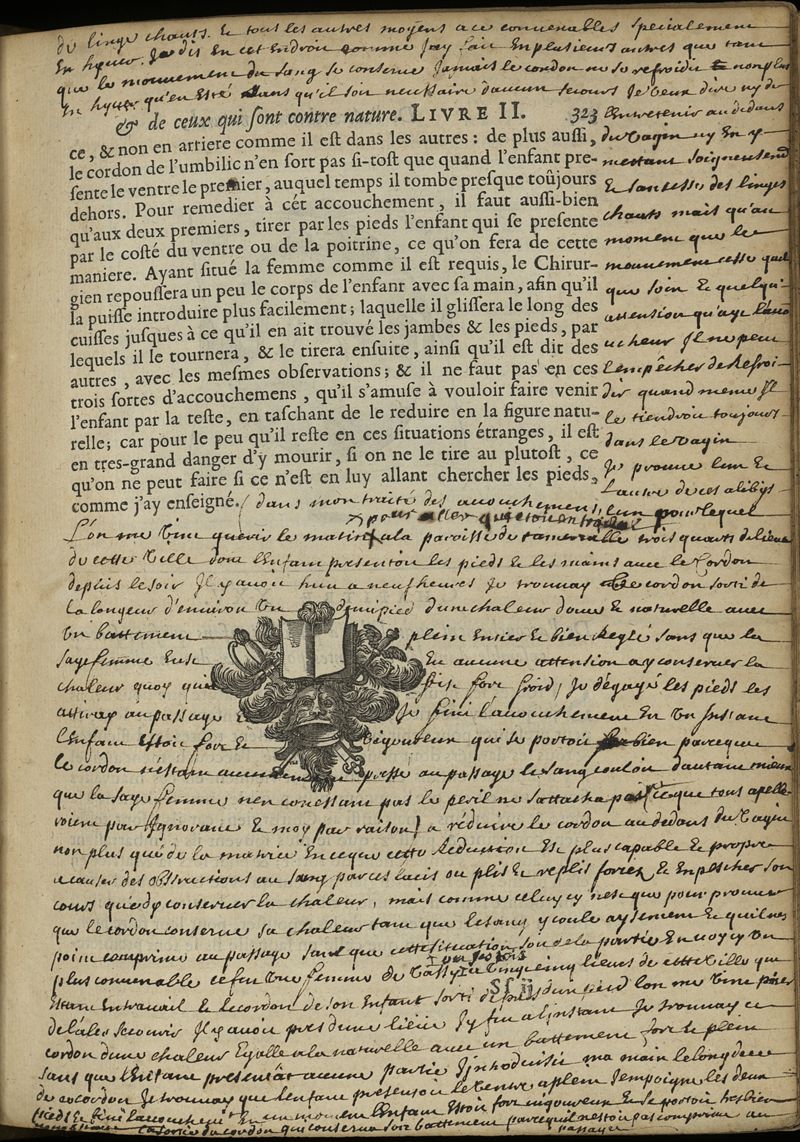 de linge chauts. Et tout les autres moyens a ce convenables specialement
En hyver. Je dis En cet Endroit comme jay fait En plusieurs autres que tant
que le mouvement du sang se conserve Jamais le cordon ne se refroidit non plus
En hyver qu'en Esté sans qu'il soit necessaire d'aucun secours Je veux dire ny de
& de ceux qui ſont contre nature. LIVRE II. 323
ce, & non en artiere comme il eſt dans les autres: de plus auſſi,
le cordon de l'umbilic n'en ſort pas ſi-toſt que quand l'enfant pre-
ſente le ventre le premier, auquel temps il tombe preſque toûjours
dehors. Pour remedier à cét accouchement, il faut auſſi-bien
qu'aux deux premiers, tirer par les pieds l'enfant qui ſe preſente
par le coſté du ventre ou de la poitrine, ce qu'on fera de cette
maniere. Ayant ſitué la femme comme il eſt requis, le Chirur-
gien repouſſera un peu le corps de l'enfanr avec ſa main, afin qu'il
la puiſſe introduire plus facilement; laquelle il gliſſera le long des
cuiſſes juſques à ce qu'il en ait trouvé les jambes & les pieds, par
lequels il le tournera, & le tirera enſuite, ainſi qu'il eſt dit des
autres, avec les meſmes obſervations; & il ne faut pas en ces
trois ſortes d'accouchemens, qu'il s'amuſe à vouloir faire venir
l'enfant par la teſte, en taſchant de le reduire en la figure natu-
relle; car pour le peu qu'il reſte en ces ſituations étranges, il eſt
en tres-grand danger d'y mourir, ſi on ne le tire au plutoſt, ce
qu'on ne peut faire ſi ce n'eſt en luy allant chercher les pieds,
comme j'ay enſeigné. dans mon traité des acouchemens
l'Entretenir au dedans
du vagin ny En y
mettant soigneusemt
Et sans cesse des linges
chauts mais qu'au
moment que le
mouvement cesse quel
que soin Et quelqu'
attension qu'aye l'aco
ucheur Il ne peut
l'empêcher de Refroi
dir quand meme Il
le tiendroit toujours
dans le vagin
Je prouve l'un Et
L'autre de ces
l'un pour lequel
L'on me vint querir le matin a la paroisse de trois quarts de lieue
de cette ville dont l'Enfant presentoit les pieds Et les mains avec le Cordon
depuis le soir Il y avoit huit a neuf heures Je trouvay le cordon sorti de
la longeur d'environ un demi pied d'une chaleur douce Et naturelle avec
un battement plein Entier Et bien Reglé sans que la
sagefemme Eust Eu aucune attension a y conserver la
chaleur quoy qu'il fist fort froid, Je dégagé les pieds les
attiray au passage Et Je fini l'acouchement En un Instant
l'Enfant Estoit fort Et vigoureux qui se portoit bien parceque
le cordon n'estant aucunement pressé au passage le sang couloit d'autant mieux
que la sage femme n'en conessant pas le peril ne s'attacha pas
par Ignorance Et moy par raison a réduire le cordon au dedans du vagin
non plus que de la matrice En ce que cette Reduction Est plus capable Et propre
a causer des obstructions au sang par ces lacis ou plis Et replis forcés Et Enpescher son
cours que dy conserver la chaleur, mais comme celuy cy n'est que pour prouver
que le cordon conserve sa chaleur tant que le sang y coule aysement Et qu'il n'est
point comprimé au passage sans que cette situation soit de la partie En voycy un
plus convenable ce fut une femme de vingt cinq lieues de cette ville qui
Sſ ij
Estant En travail Et le cordon de son Enfant sorti de pres d'un pied l'on me vint prier
de l'aler secourir Il y avoit pres d'une lieue J'y fus a l'instant Je trouvay ce
cordon d'une chaleur Egalle a la naturelle avec un battement fort Et plein
sans que l'Enfant presentât aucune partie J'introduisis ma main le long de ce
cordon Je trouvay que l'enfant presentoit le ventre a plein J'empoigné les deux
pieds Et fini l'acouchemt En un moment l'Enfant Estoit fort vigoureux Et se portoit tres bien
la sortie du cordon qui conserva son battement parcequ'il n'estoit pas comprimé au
passage